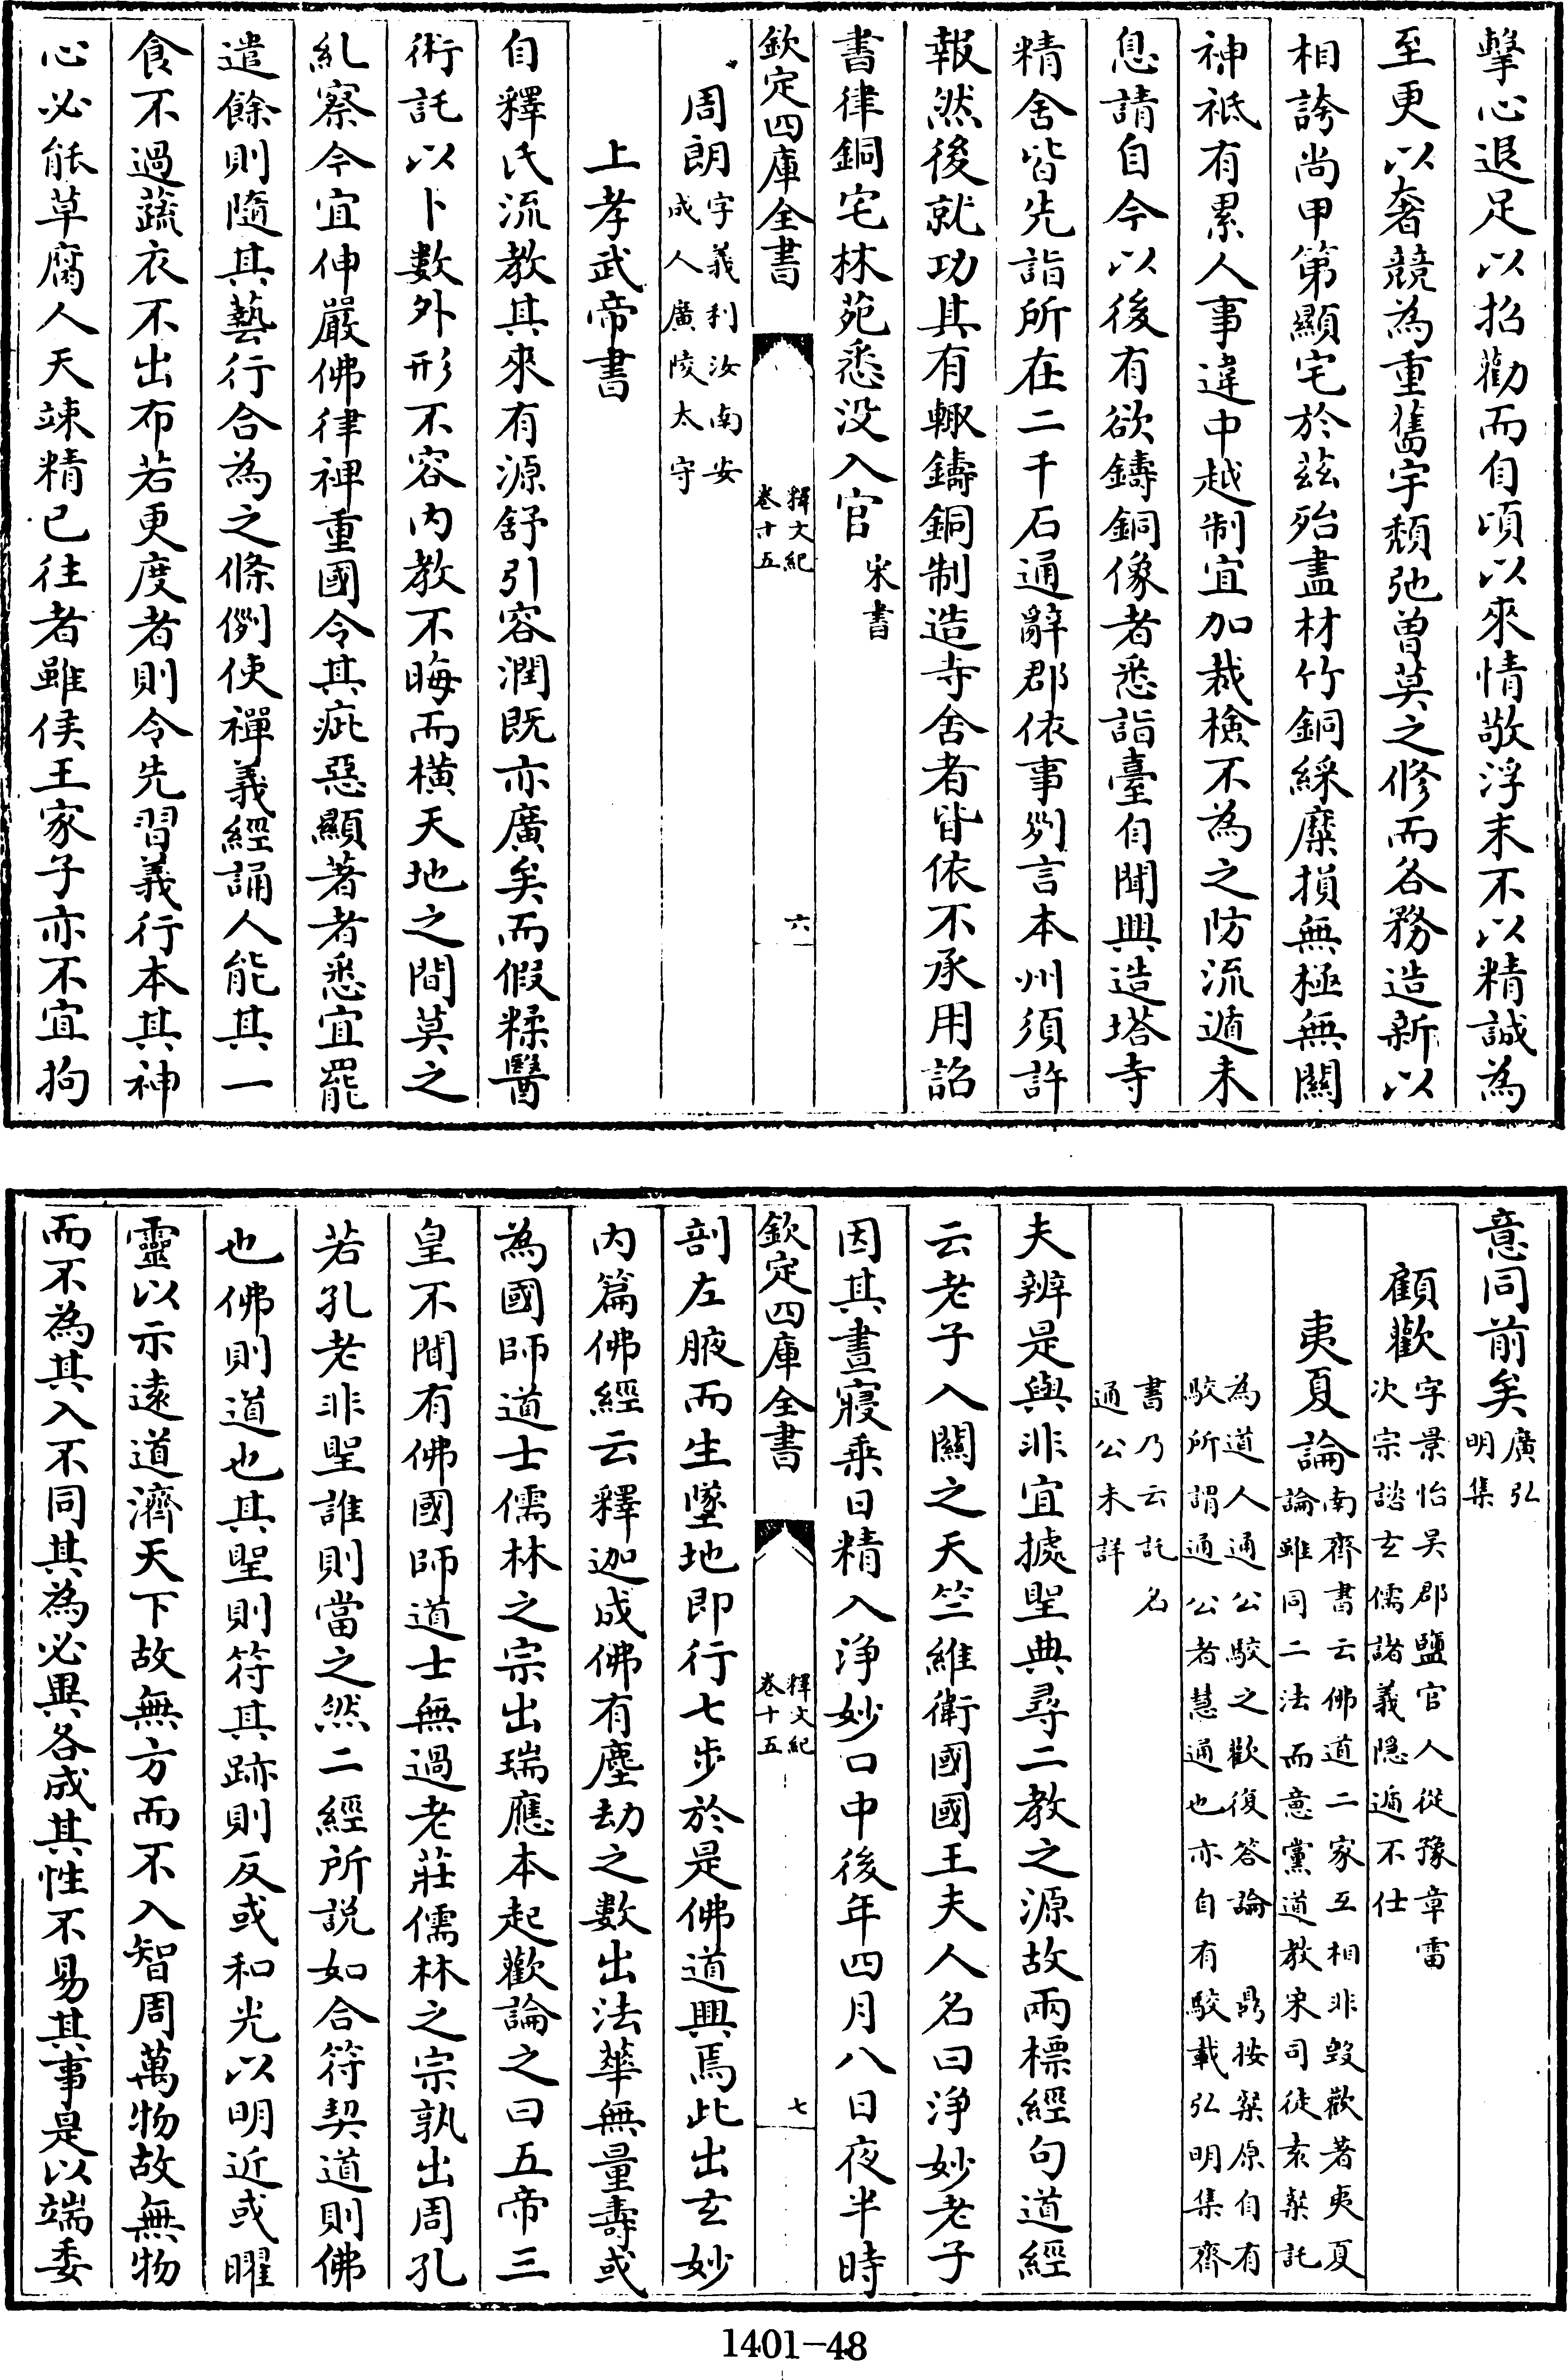 擊心退足以招勸而自頃以來情敬浮末不以精誠為
至更以奢競為重舊宇頹弛曾莫之修而各務造新以
相誇尚甲第顯宅於茲殆盡材竹銅綵糜損無極無關
神祇有累人事違中越制宜加裁檢不為之防流遁未
息請自今以後有欲鑄銅像者悉詣臺自聞興造塔寺
精舍皆先詣所在二千石通辭郡依事列言本州須許
報然後就功其有輙鑄銅制造寺舍者皆依不承用詔
書律銅宅林苑悉没入官宋書
欽定四庫全書
釋文紀
卷十五
六
周朗字義利汝南安
成人廣陵太守
上孝武帝書
自釋氏流教其來有源舒引容潤既亦廣矣而假糅醫
術託以卜數外形不容内教不晦而横天地之間莫之
糺察今宜伸嚴佛律禆重國令其疵惡顯著者悉宜罷
遣餘則隨其藝行合為之條例使禪義經誦人能其一
食不過蔬衣不出布若更度者則令先習義行本其神
心必能草腐人天竦精已往者雖侯王家子亦不宜拘
意同前矣廣弘
明集
顧歡字景怡吳郡鹽官人從豫章雷
次宗諮玄儒諸義隱遁不仕
夷夏論南齊書云佛道二家互相非毁歡著夷夏
論雖同二法而意黨道教宋司徒袁粲託
為道人通公駮之歡復答論　鼎按粲原自有
駮所謂通公者慧通也亦自有駮載弘明集齊
書乃云託名
通公未詳
夫辨是與非宜據聖典尋二教之源故兩標經句道經
云老子入關之天竺維衛國國王夫人名曰浄妙老子
因其晝寢乘日精入浄妙口中後年四月八日夜半時
欽定四庫全書
釋文紀
卷十五
七
剖左腋而生墜地即行七步於是佛道興焉此出玄妙
内篇佛經云釋迦成佛有塵劫之數出法華無量壽或
為國師道士儒林之宗出瑞應本起歡論之曰五帝三
皇不聞有佛國師道士無過老莊儒林之宗孰出周孔
若孔老非聖誰則當之然二經所說如合符契道則佛
也佛則道也其聖則符其跡則反或和光以明近或曜
靈以示遠道濟天下故無方而不入智周萬物故無物
而不為其入不同其為必異各成其性不易其事是以端委
1401-48